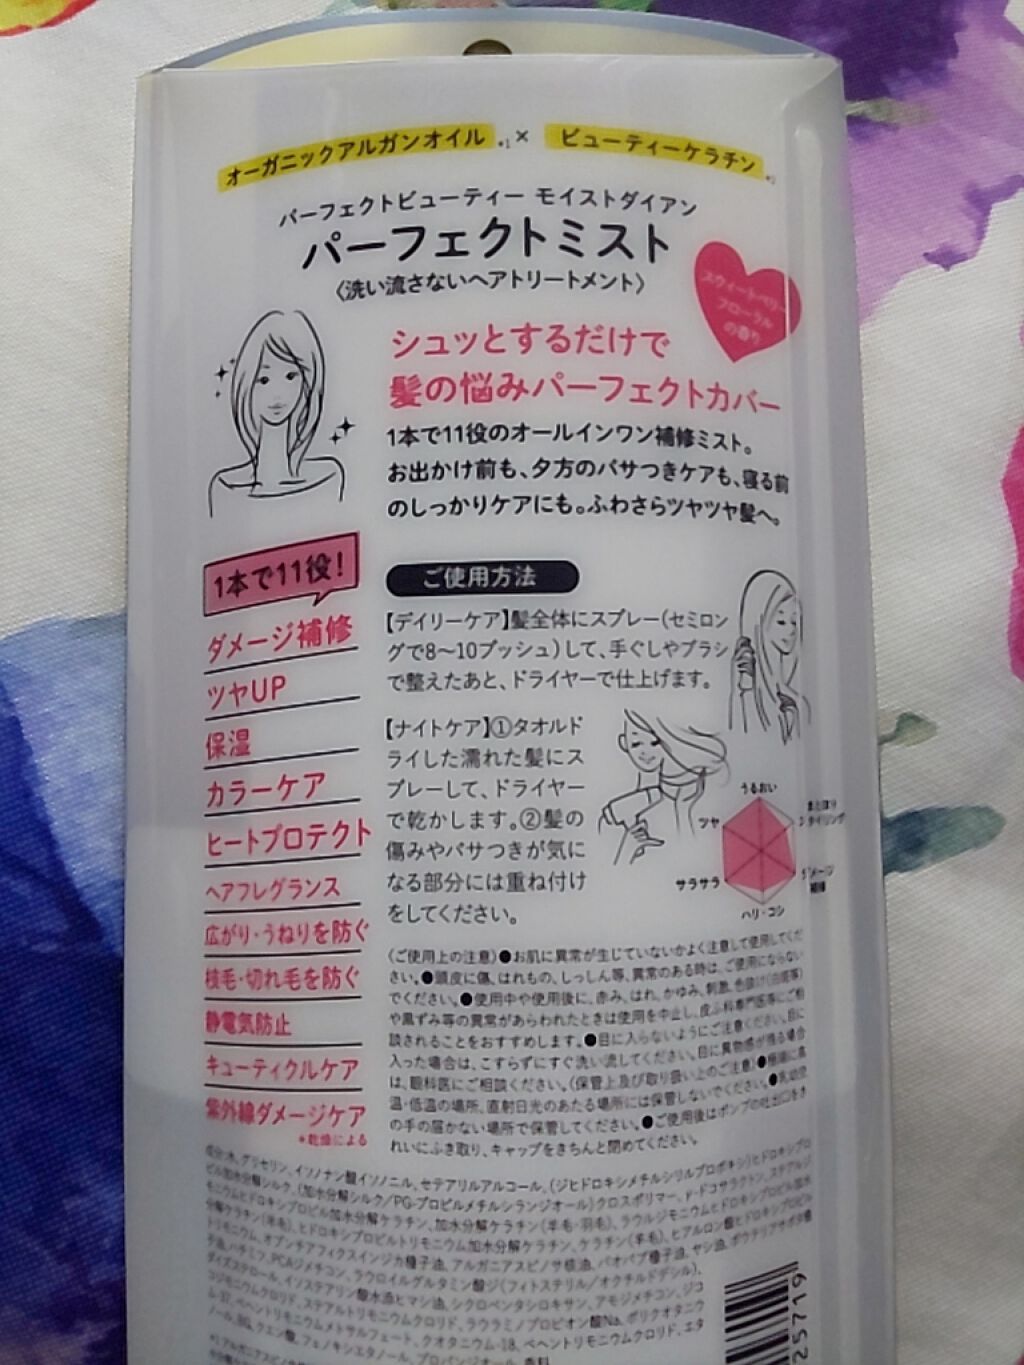 オーガニックアルガンオイル*1 × ビューティーケラチン
パーフェクトビューティー モイストダイアン
パーフェクトミスト
〈洗い流さないヘアトリートメント〉
スウィートベリー
フローラル
の香り
シュッとするだけで
髪の悩みパーフェクトカバー
1本で11役のオールインワン補修ミスト。
お出かけ前も、夕方のパサつきケアも、寝る前
のしっかりケアにも。ふわさらツヤツヤ髪へ。
1本で11役!
ダメージ補修
ツヤUP
保湿
カラーケア
ヒートプロテクト
ヘアフレグランス
広がり・うねりを防ぐ
枝毛・切れ毛を防ぐ
静電気防止
キューティクルケア
紫外線ダメージケア
*乾燥による
ご使用方法
【デイリーケア】髪全体にスプレー(セミロン
グで8〜10プッシュ)して、手ぐしやブラシ
で整えたあと、ドライヤーで仕上げます。
【ナイトケア】①タオルド
ライした濡れた髪にス
プレーして、ドライヤー
で乾かします。②髪の
傷みやパサつきが気に
なる部分には重ね付け
をしてください。
うるおい
ツヤ
サラサラ
ハリ・コシ
ダメージ
補修
〈ご使用上の注意〉●お肌に異常が生じていないかよく注意して使用してくだ
さい。●頭皮に傷、はれもの、しっしん等、異常のある時は、ご使用にならない
でください。●使用中や使用後に、赤み、はれ、かゆみ、刺激、色抜け(白斑等)
や黒ずみ等の異常があらわれたときは使用を中止し、皮ふ科専門医等にご相
談されることをおすすめします。●目に入らないようにご注意ください。目に
入った場合は、こすらずにすぐ洗い流してください。目に異物感が残る場合
は、眼科医にご相談ください。〈保管上及び取り扱い上のご注意〉●極端に高
温・低温の場所、直射日光のあたる場所には保管しないでください。●乳幼児
の手の届かない場所で保管してください。●ご使用後はポンプの吐出口をき
れいにふき取り、キャップをきちんと閉めてください。
成分:水、グリセリン、イソノナン酸イソノニル、セテアリルアルコール、(ジヒドロキシメチルシリルプロポキシ)ヒドロキシプロ
ピル加水分解シルク、(加水分解シルク/PG-プロピルメチルシランジオール)クロスポリマー、γ-ドコサラクトン、ステアルジ
モニウムヒドロキシプロピル加水分解ケラチン、加水分解ケラチン(羊毛・羽毛)、ラウルジモニウムヒドロキシプロピル加水
分解ケラチン(羊毛)、ヒドロキシプロピルトリモニウム加水分解ケラチン、ケラチン(羊毛)、ヒアルロン酸ヒドロキシプロピル
トリモニウム、オプンチアフィクスインジカ種子油、アルガニアスピノサ核油、バオバブ種子油、ヤシ油、ポウテリアサポタ種
子油、ハチミツ、PCAジメチコン、ラウロイルグルタミン酸ジ(フィトステリル/オクチルドデシル)、
ダイズステロール、イソステアリン酸水添ヒマシ油、シクロペンタシロキサン、アモジメチコン、ジコ
コジモニウムクロリド、ステアルトリモニウムクロリド、ラウラミノプロピオン酸Na、ポリクオタニウ
ム-37、ベヘントリモニウムメトサルフェート、クオタニウム-18、ベヘントリモニウムクロリド、エタ
ノール、BG、クエン酸、フェノキシエタノール、プロパンジオール、香料
25719